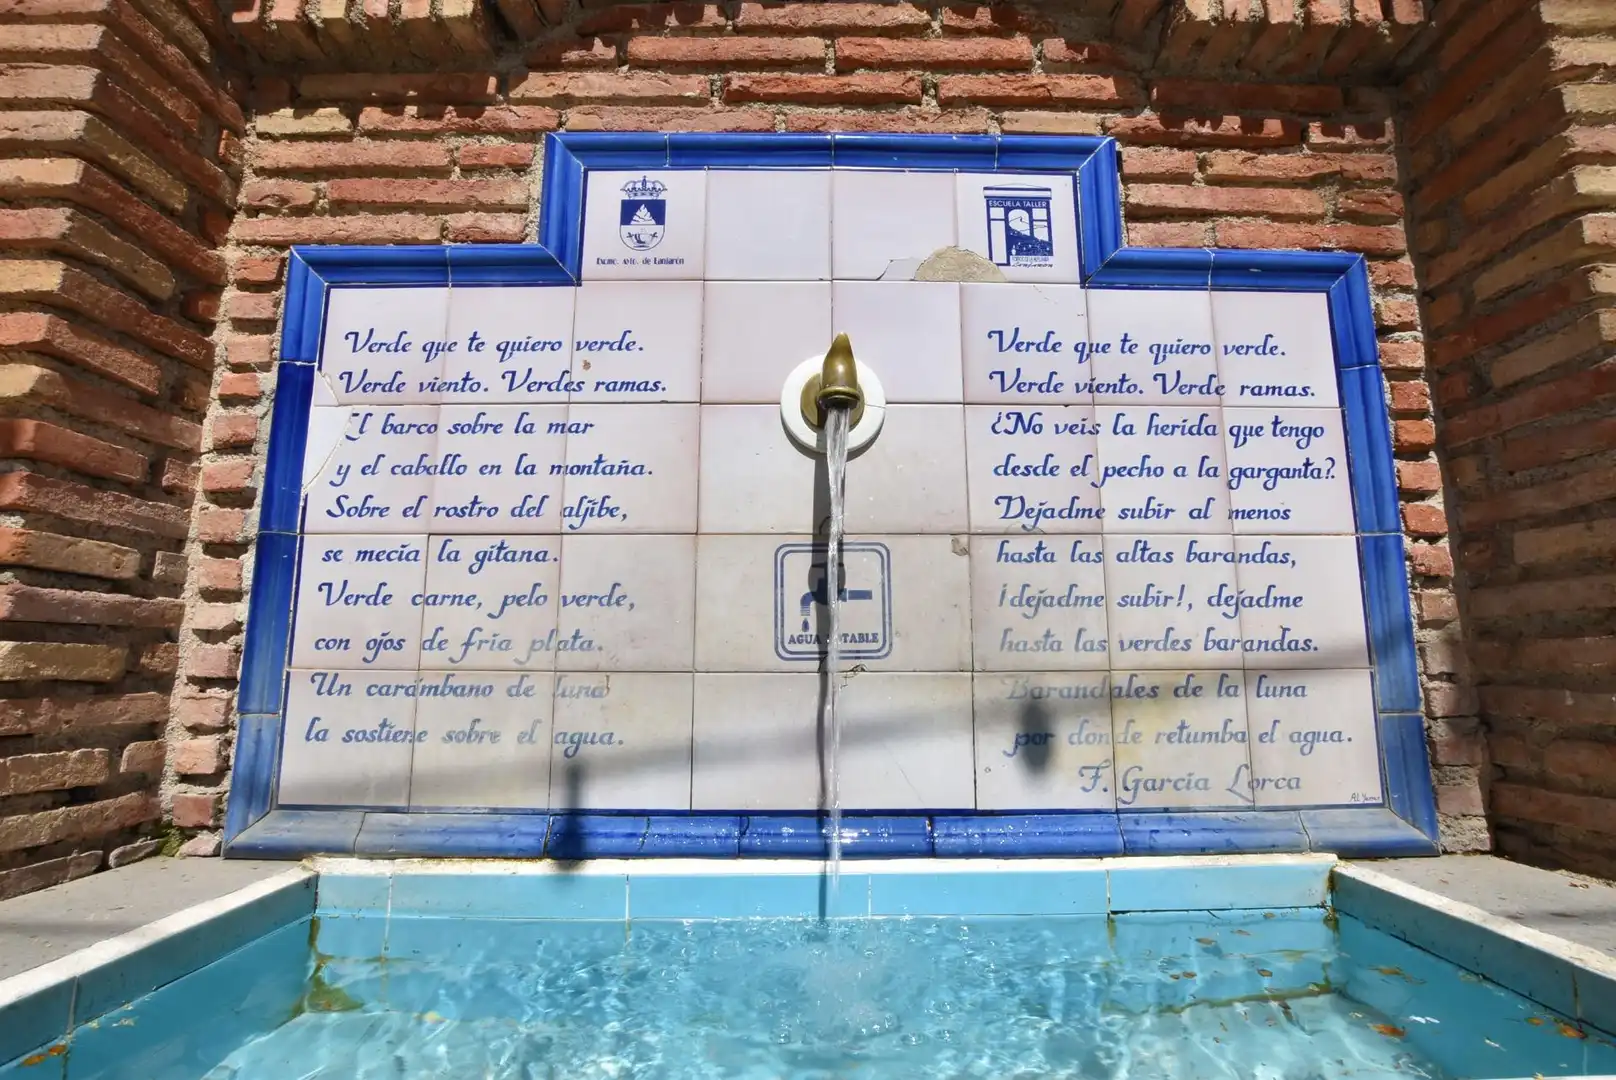 Excmo. Ayto. de Lanjarón
ESCUELA TALLER
Verde que te quiero verde.
Verde viento. Verdes ramas.
El barco sobre la mar
y el caballo en la montaña.
Sobre el rostro del aljibe,
se mecía la gitana.
Verde carne, pelo verde,
con ojos de fría plata.
Un carámbano de luna
la sostiene sobre el agua.
AGUA POTABLE
Verde que te quiero verde.
Verde viento. Verde ramas.
¿No veis la herida que tengo
desde el pecho a la garganta?
Dejadme subir al menos
hasta las altas barandas,
¡dejadme subir!, dejadme
hasta las verdes barandas.
Barandales de la luna
por donde retumba el agua.
F. García Lorca